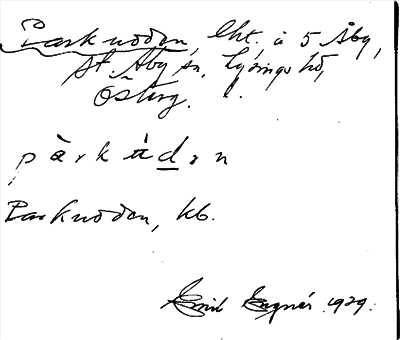 Parknoden, lht, å 5 Åby,
St. Åby sn, Lysings hd,
Österg.
p à r k ù d ə n
Parknoden, kb.
Emil Wagnér 1929.